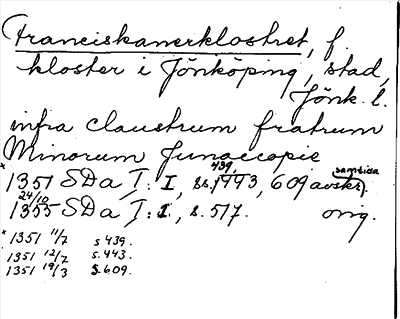 Franciskanerklostret, f.
kloster i Jönköping, stad,
Jönk. l.
infra claustrum fratrum
Minorum Junacopie
439, samtida
*1351 SDa I: I, ss. 443, 609 avskr.
24/10
1355 SDa I: 1, s. 517. orig.
*1351 11/7 s 439.
1351 12/7 s. 443.
1351 19/3 s. 609.